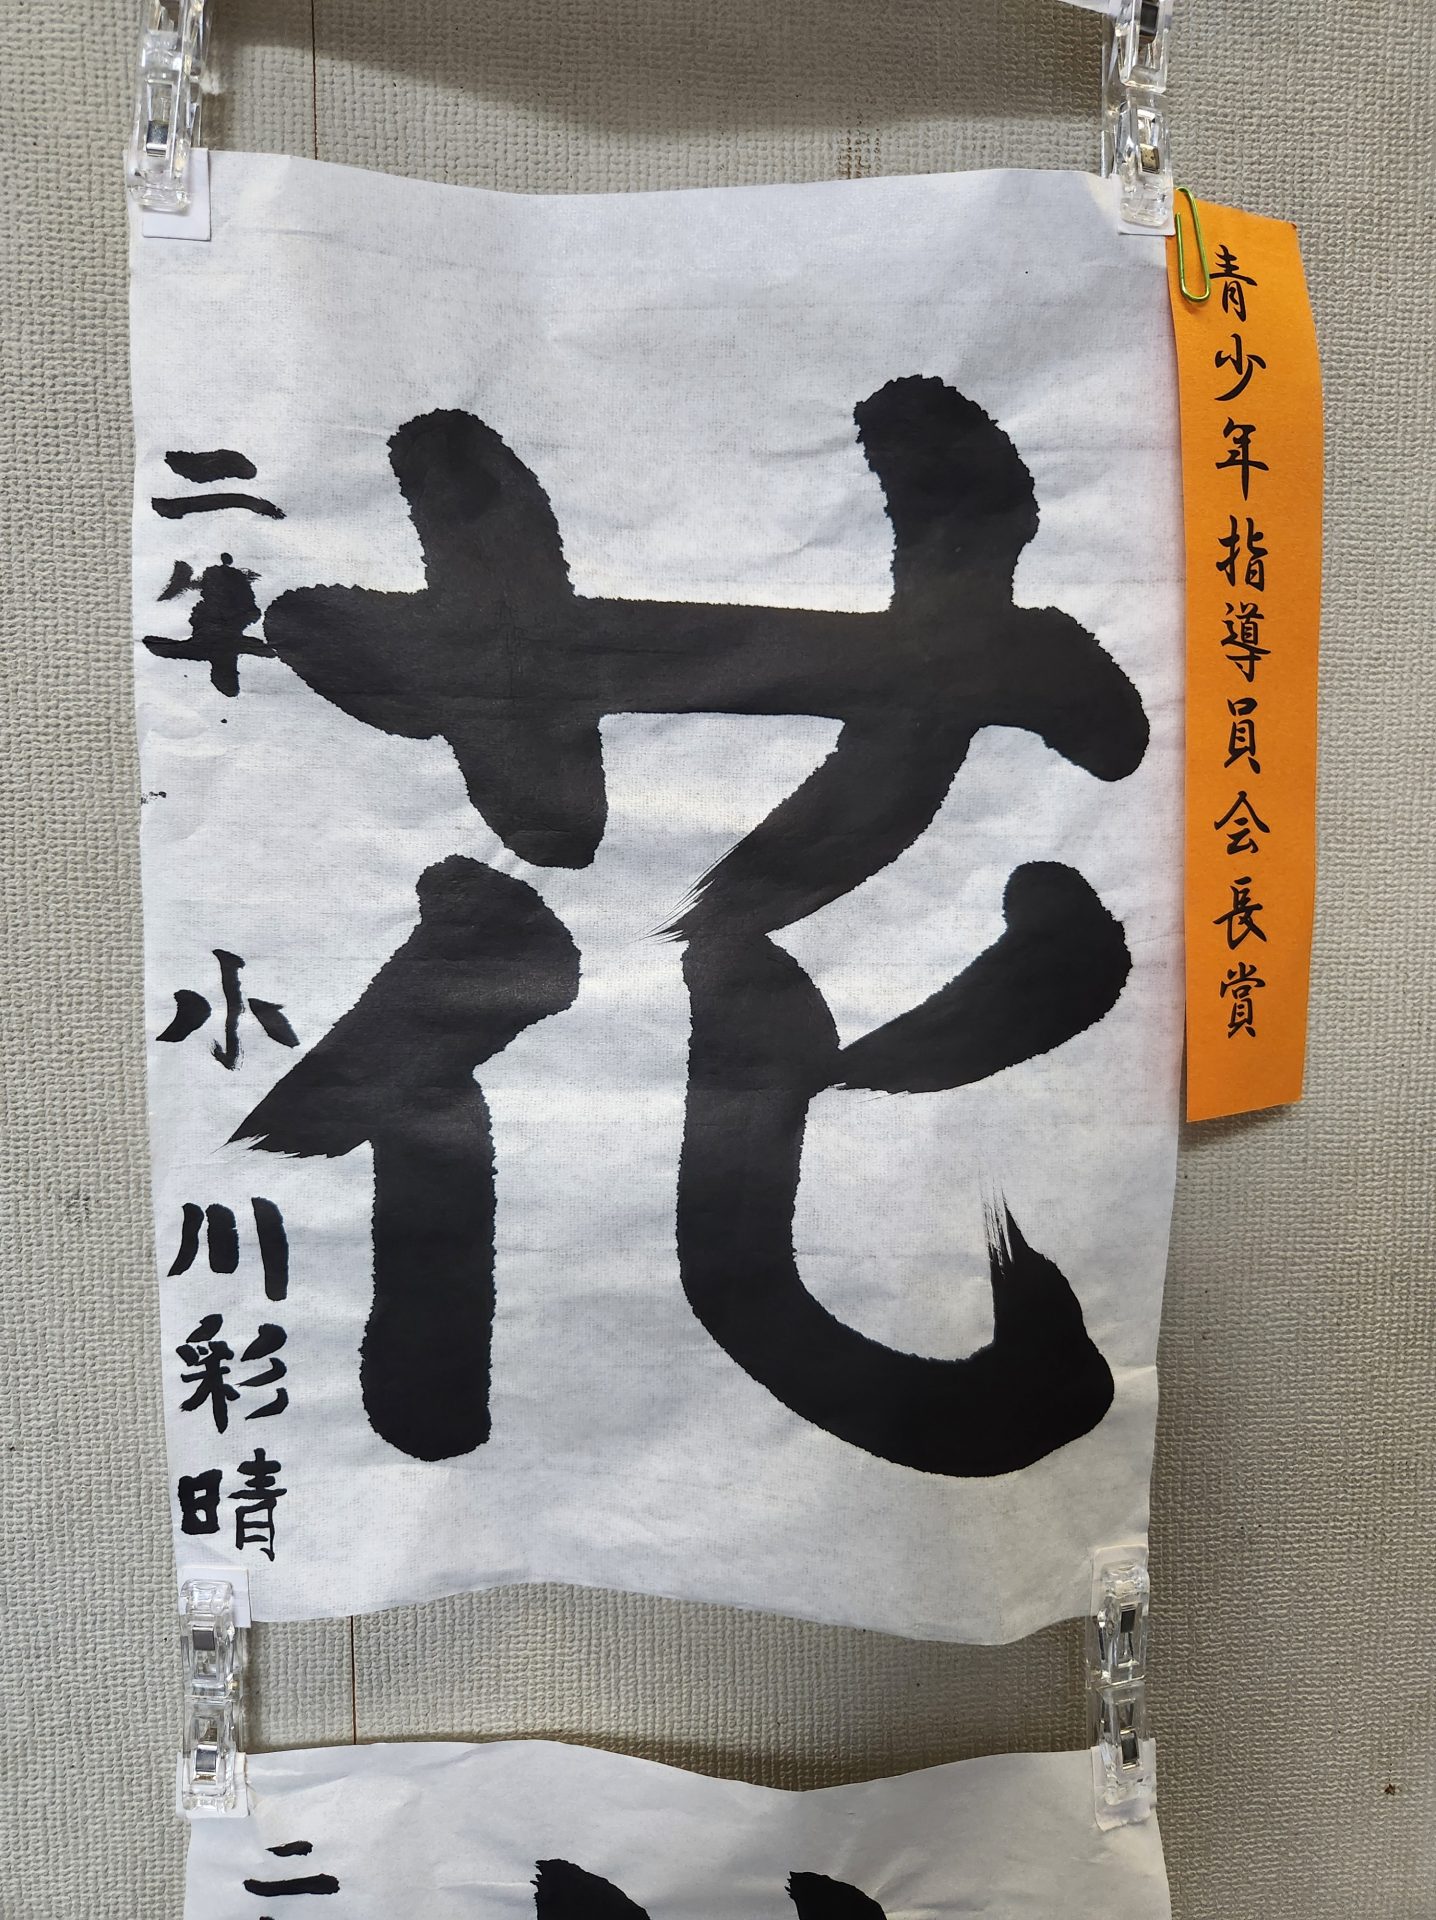 青少年指導員会長賞
花
二年 小川彩晴
二